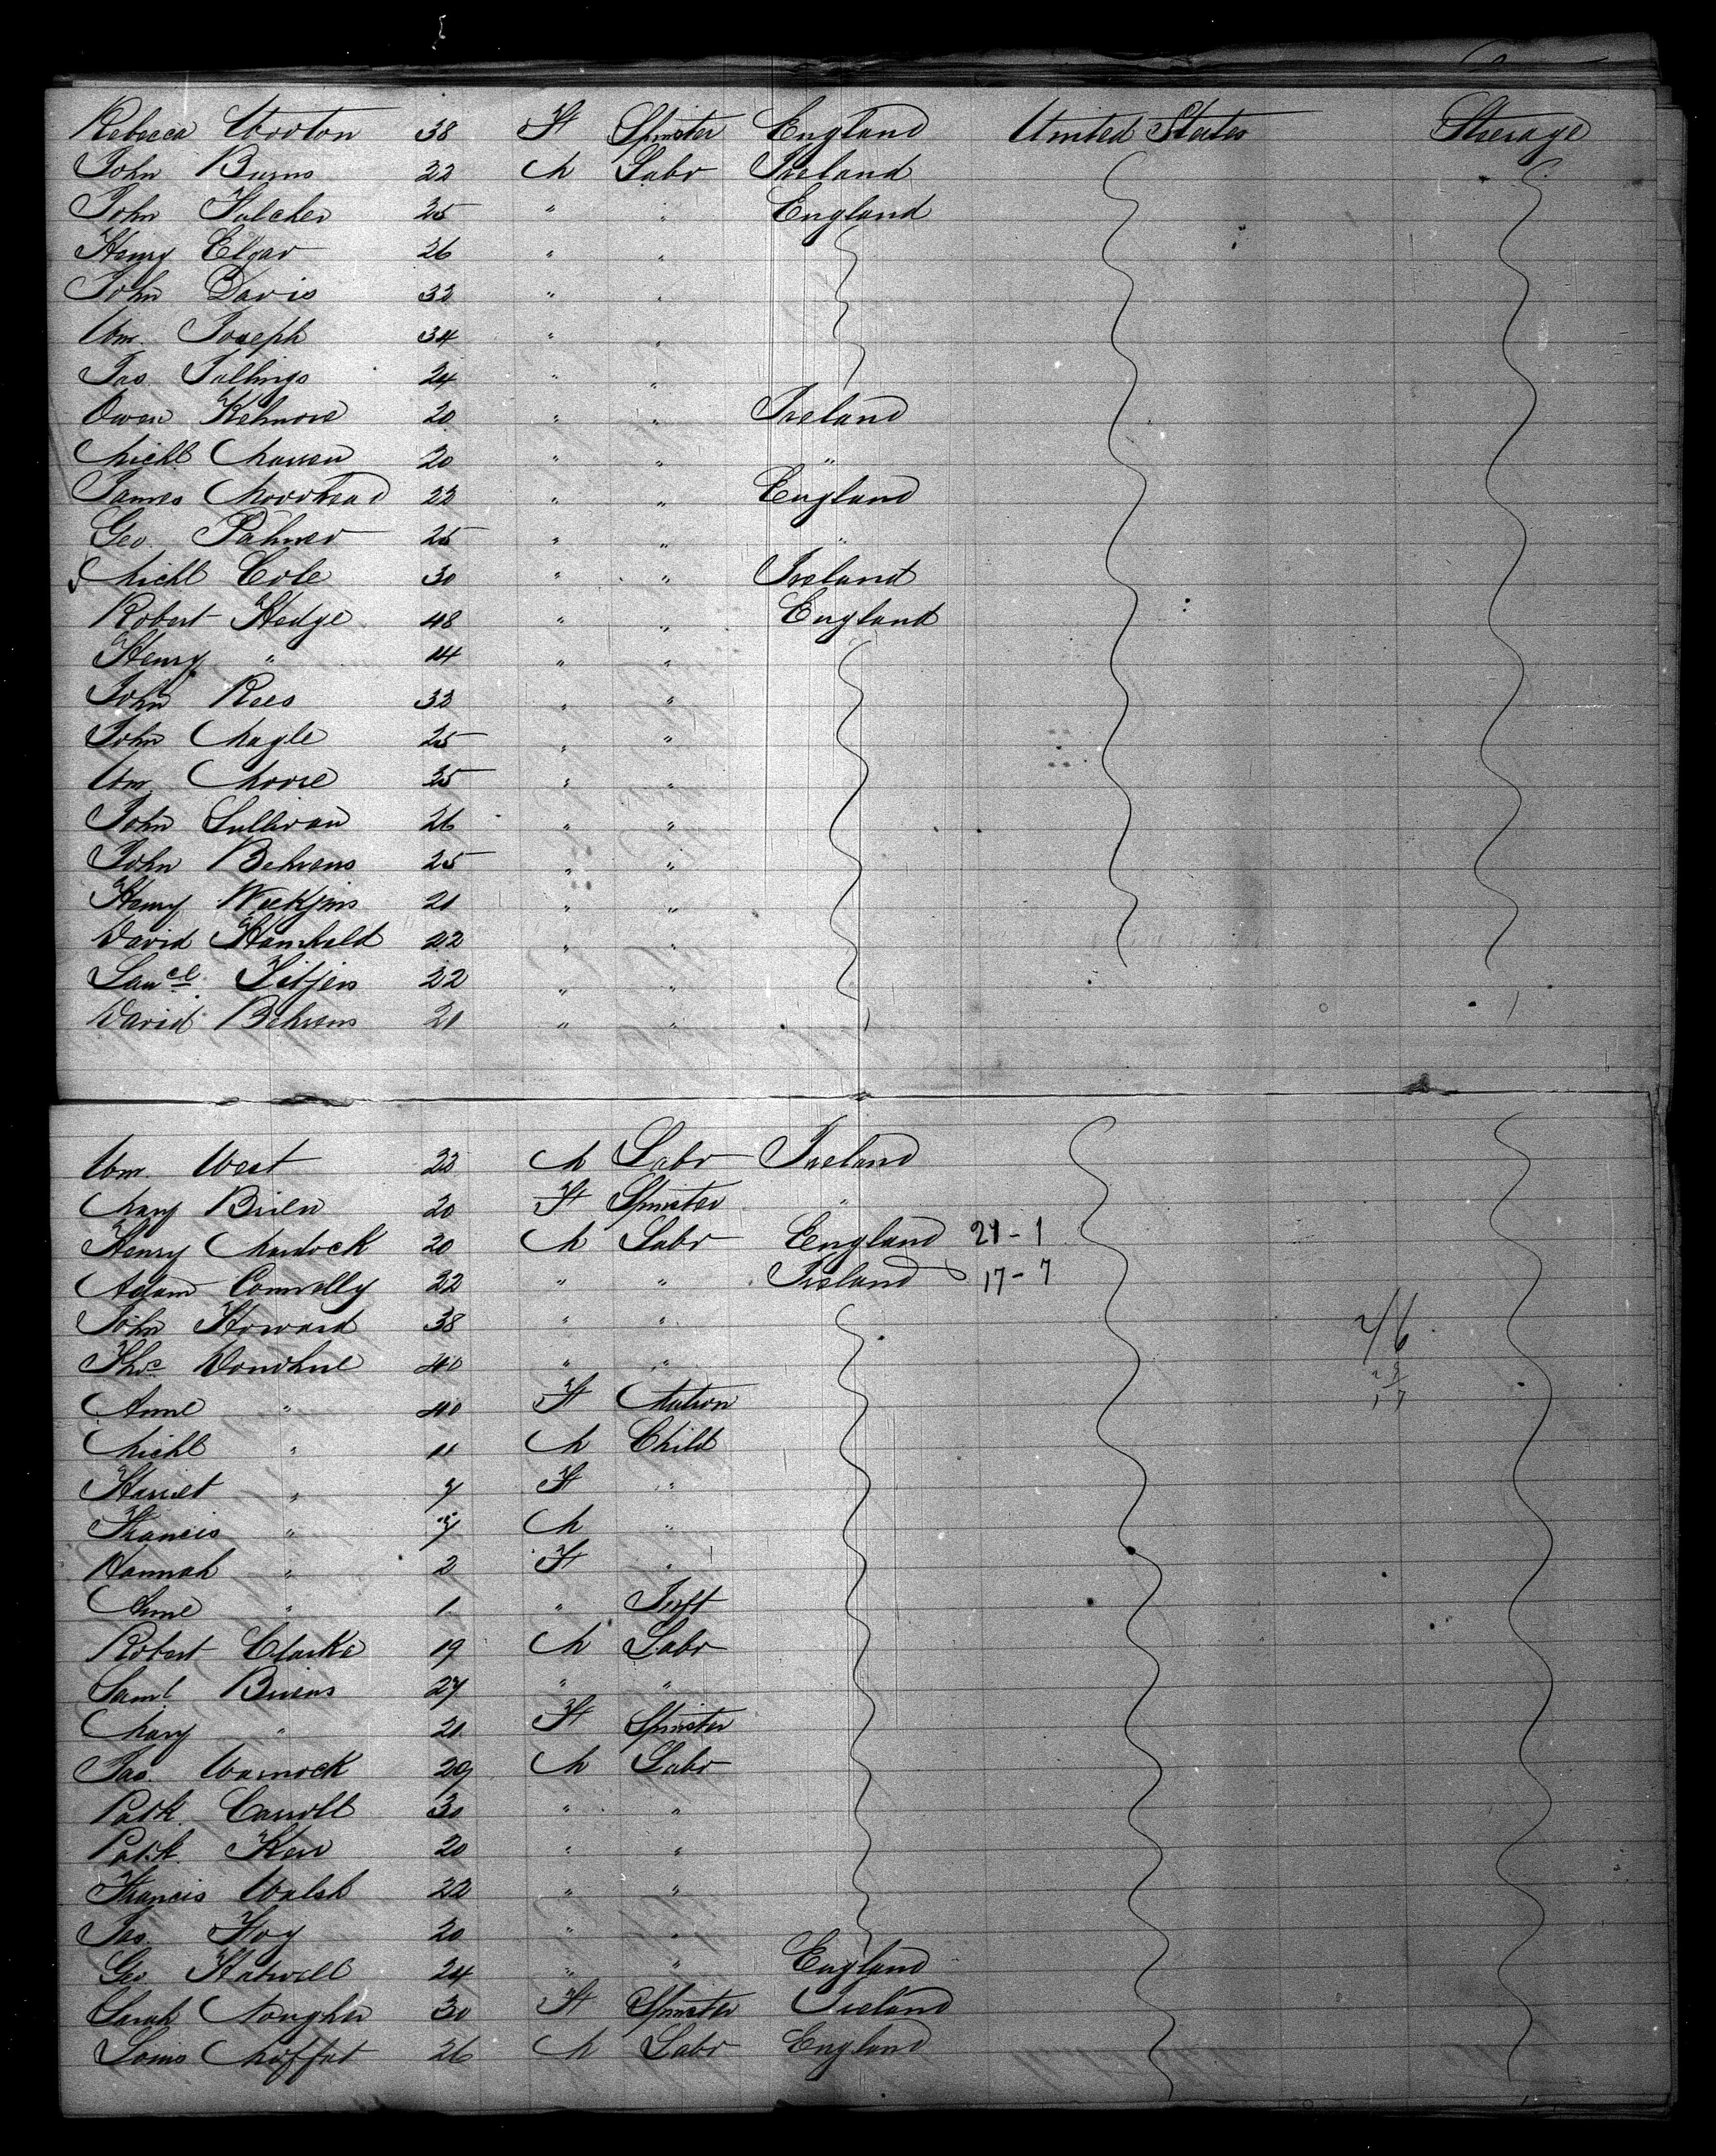 Rebecca Wooton 38 F Spinster England United States Steerage
John Burns 22 M Labr Ireland
John Fulcher 25 " " England
Henry Elgar 26 " "
John Davis 33 " "
Wm. Joseph 34 " "
Jas. Jallings 24 " "
Owen Kelmore 20 " " Ireland
Michl. 20 " " "
James Moorhead 22 " " England
Geo. Palmer 25 " " "
Michl Cole 30 " " Ireland
Robert Hedge 48 " " England
Henry " 14 " "
John Rees 33 " "
John Magle 25 " "
Wm. Moore 25 " "
John Sullivan 26 " "
John Behrens 25 " "
Henry 21 " "
David 22 " "
22 " "
David Behrens 21 " "
Wm. West 23 M Labr Ireland
Mary Brien 20 F Spinster "
Henry Murdock 20 M Labr England 21-1
Adam Connolly 22 " " Ireland 17-7
John Howard 38 " "
Thos Donohue 40 " "
Anne " 40 F Matron
Michl " 11 M Child
Harriet " 7 F "
Francis " M "
Hannah " 2 F "
Anne " 1 " Inft
Robert Clarke 19 M Labr
Saml Birens 27 " "
Mary " 21 F Spinster
Jas. Warnock 29 M Labr
Patk. Carroll 30 " "
Patk. Kerr 20 " "
Francis Walsh 22 " "
Jas. Foy 20 " "
Geo. Hatwell 24 " " England
Sarah 30 F Spinster Ireland
Louis Moffat 26 M Labr England